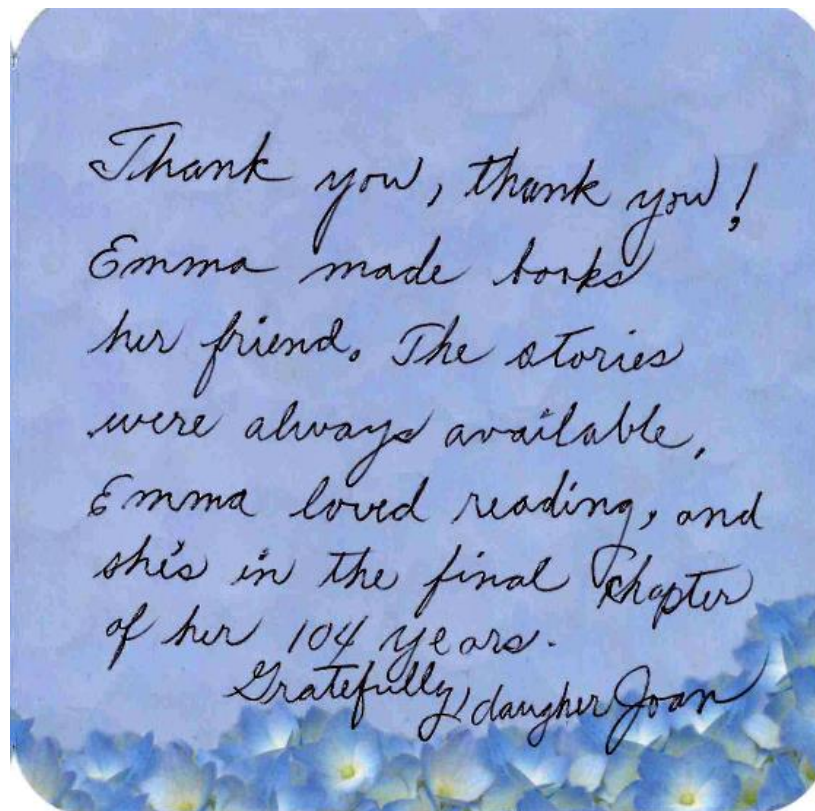 Thank you, thank you!
Emma made books
her friend. The stories
were always available.
Emma loved reading, and
she's in the final chapter
of her 104 years.
Gratefully, daugher Joan